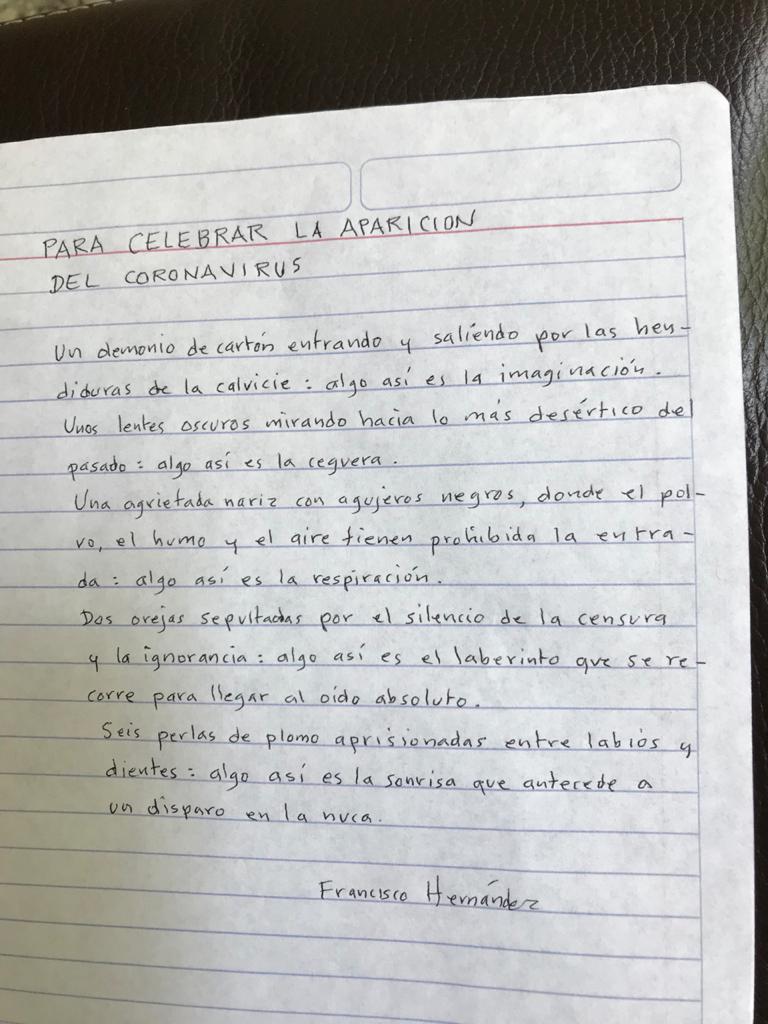 PARA CELEBRAR LA APARICION
DEL CORONAVIRUS
Un demonio de cartón entrando y saliendo por las hen-
diduras de la calvicie : algo así es la imaginación.
Unos lentes oscuros mirando hacia lo más desértico del
pasado : algo así es la ceguera.
Una agrietada nariz con agujeros negros, donde el pol-
vo, el humo y el aire tienen prohibida la entra-
da : algo así es la respiración.
Dos orejas sepultadas por el silencio de la censura
y la ignorancia : algo así es el laberinto que se re-
corre para llegar al oído absoluto.
Seis perlas de plomo aprisionadas entre labios y
dientes : algo así es la sonrisa que antecede a
un disparo en la nuca.
Francisco Hernández